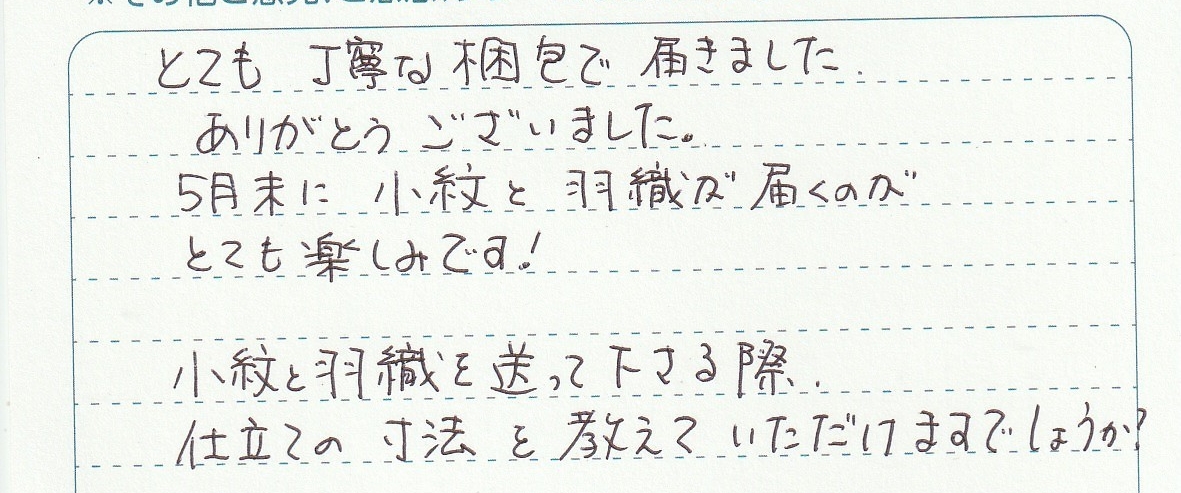 とても 丁寧な 梱包で 届きました.
ありがとう ございました。
5月末に 小紋と 羽織が 届くのが
とても 楽しみです!
小紋と羽織を 送って下さる際.
仕立ての 寸法 を 教えて いただけますでしょうか?